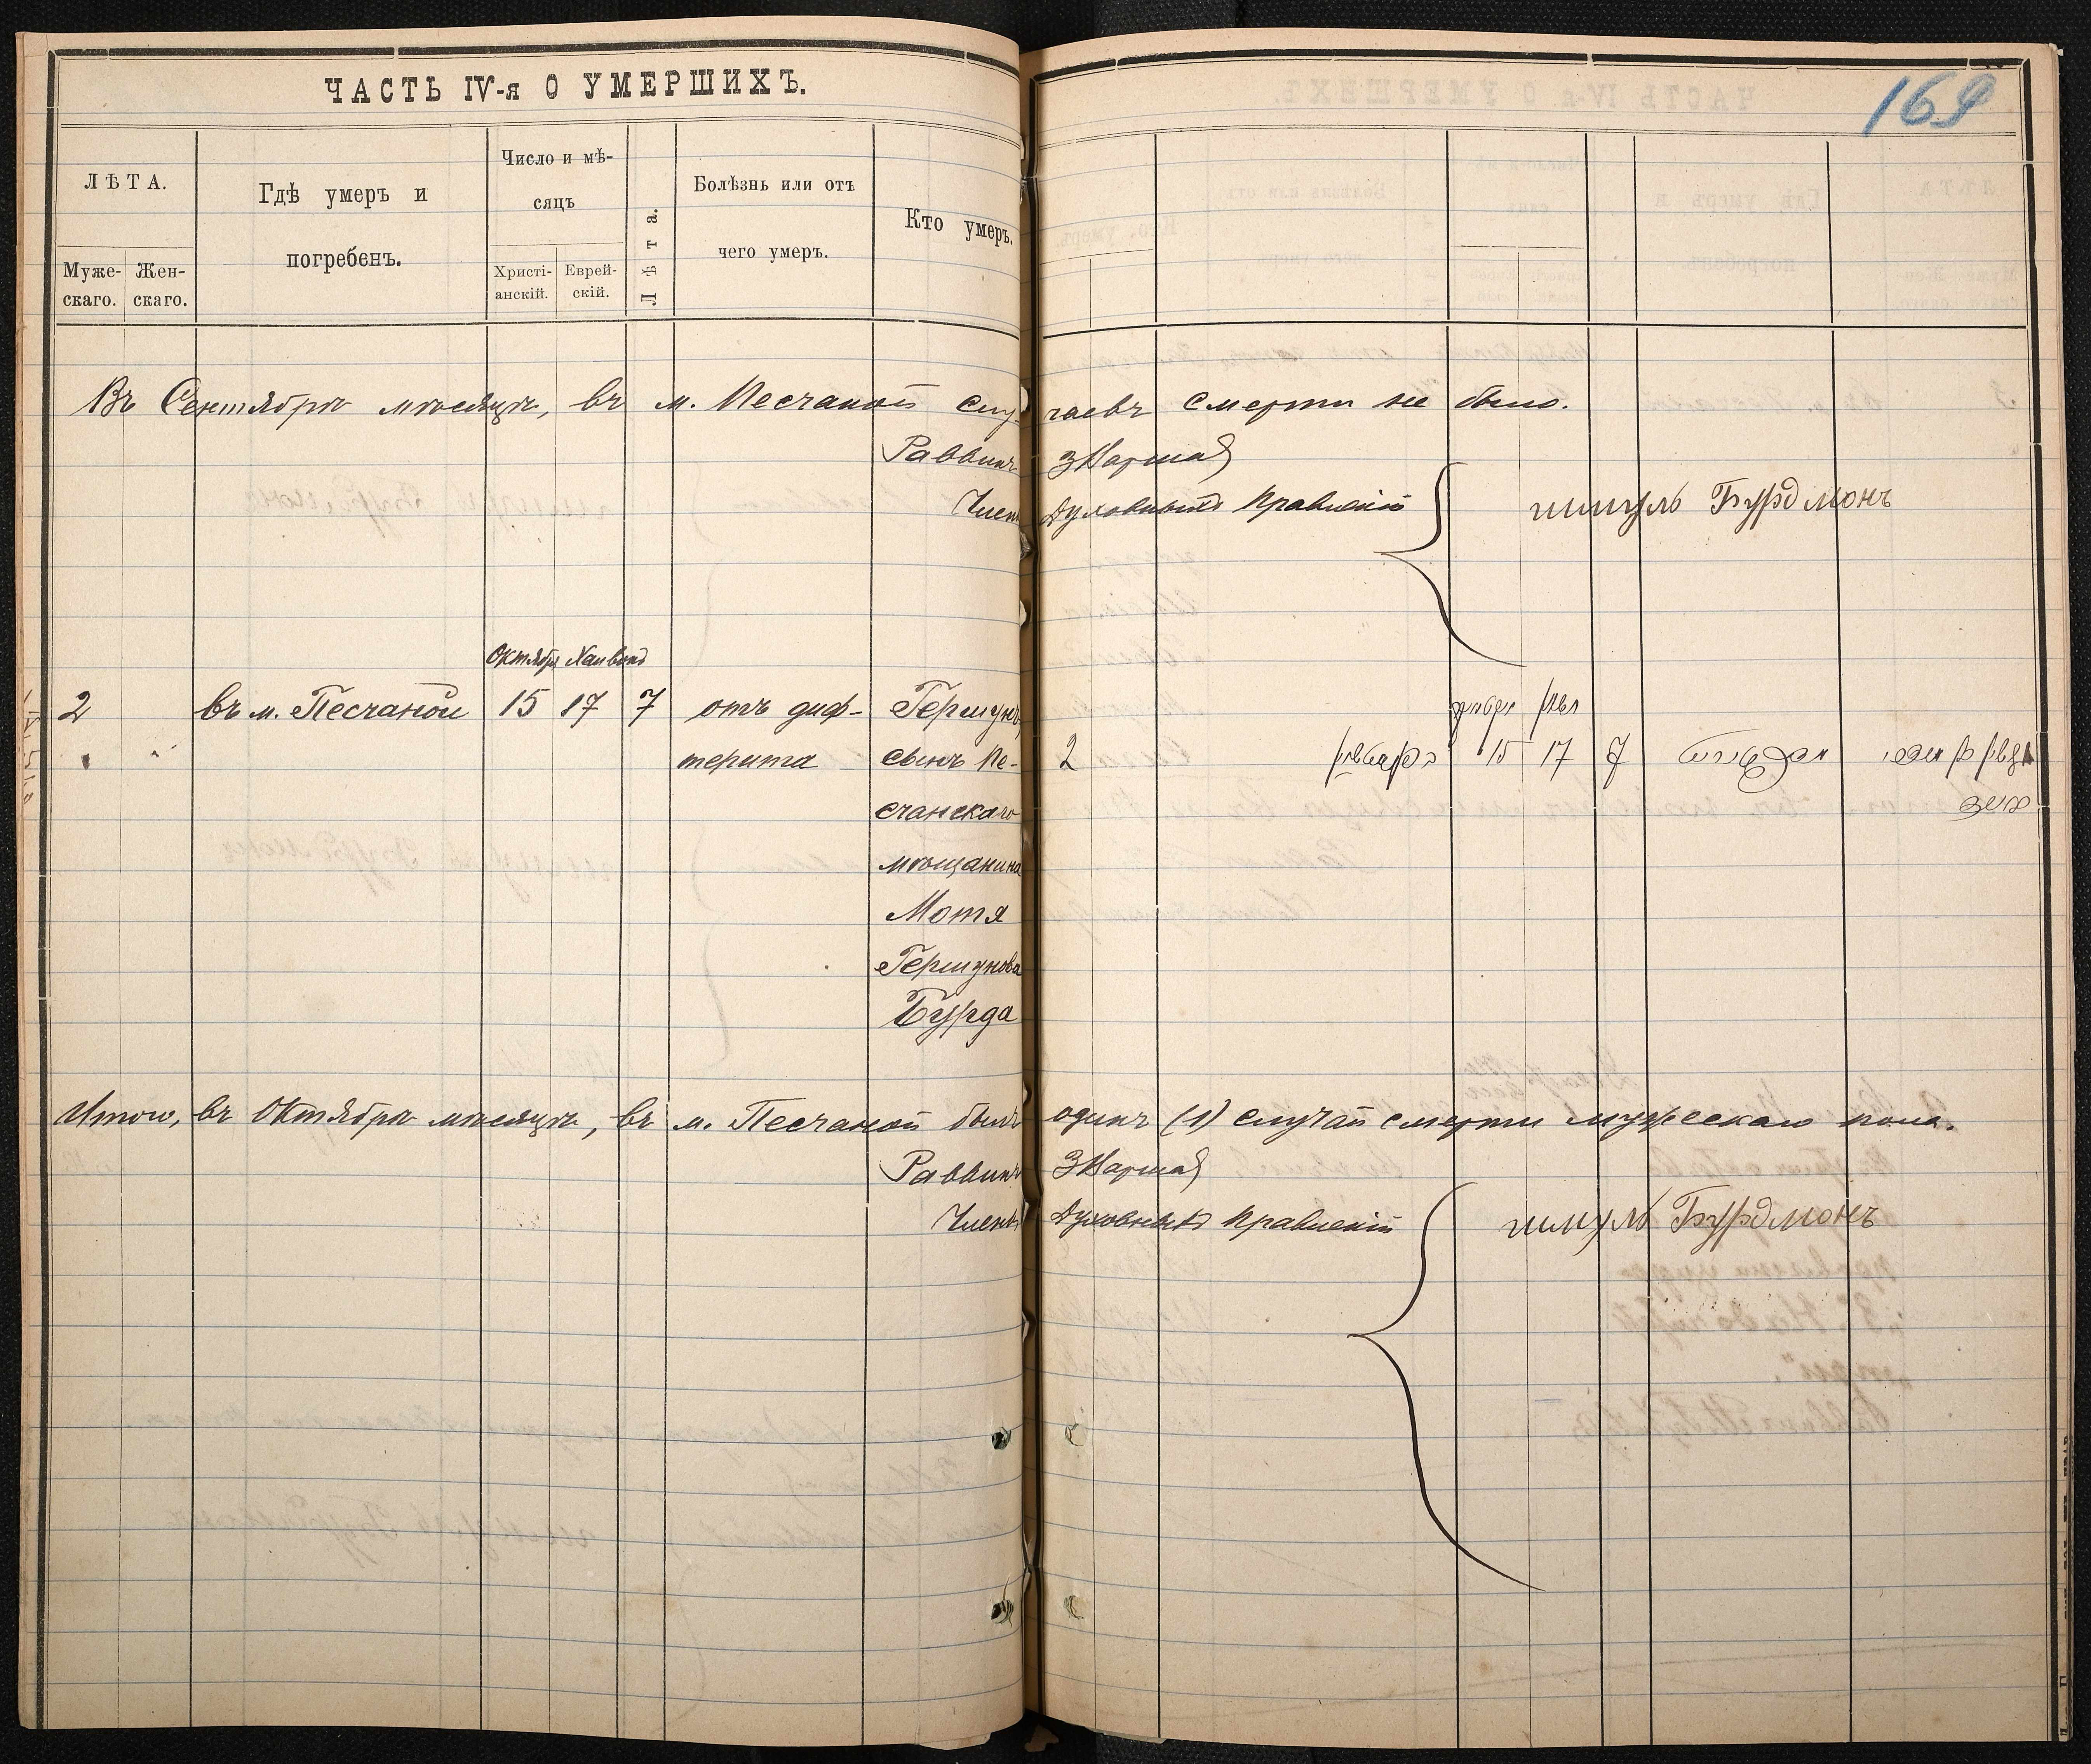 ЧАСТЬ IV-я О УМЕРШИХЪ.
169
ЛѢТА.
Муже-
скаго.
Жен-
скаго.
Гдѣ умеръ и
погребенъ.
Число и мѣ-
сяцъ
Христі-
анскій.
Еврей-
скій.
Лѣта.
Болѣзнь или отъ
чего умеръ.
Кто умеръ.
Въ Сентябрѣ мѣсяцѣ, въ м. Песчаной случаевъ смерти не было.
Раввинъ
Члены Духовныхъ Правленій Шмуль Бурдмонъ
Октября
2 въ м. Песчаной 15 17 7 отъ диф- Гершунъ,
терита сынъ Пе-
счанскаго
мѣщанина
Мотя
Гершунова
Бурда
2 15 17 7
Итого, въ Октябрѣ мѣсяцѣ, въ м. Песчаной былъ одинъ (1) случай смерти мужескаго пола.
Раввинъ
Члены Духовныхъ Правленій Шмуль Бурдмонъ